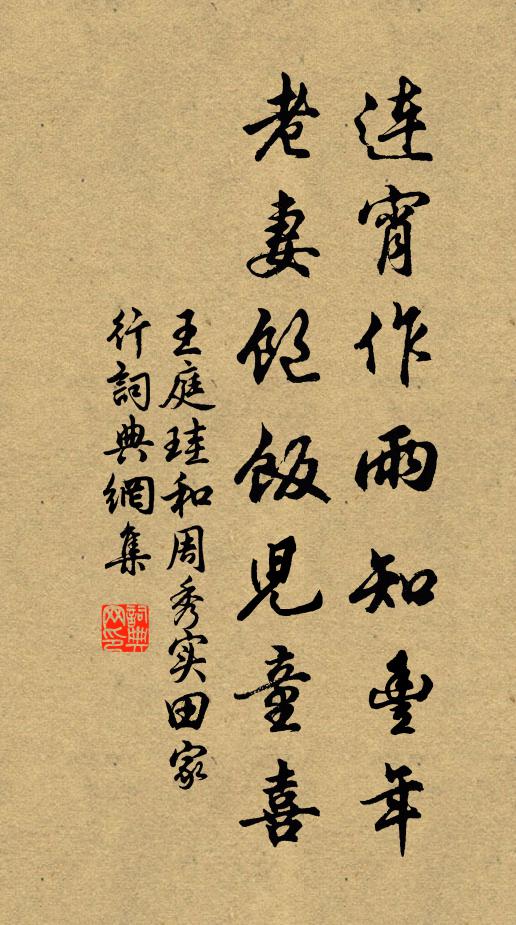 連宵作雨知豐年
老妻飽飯兒童喜
王庭珪和周秀实田家
行詞典網集
詞典网印